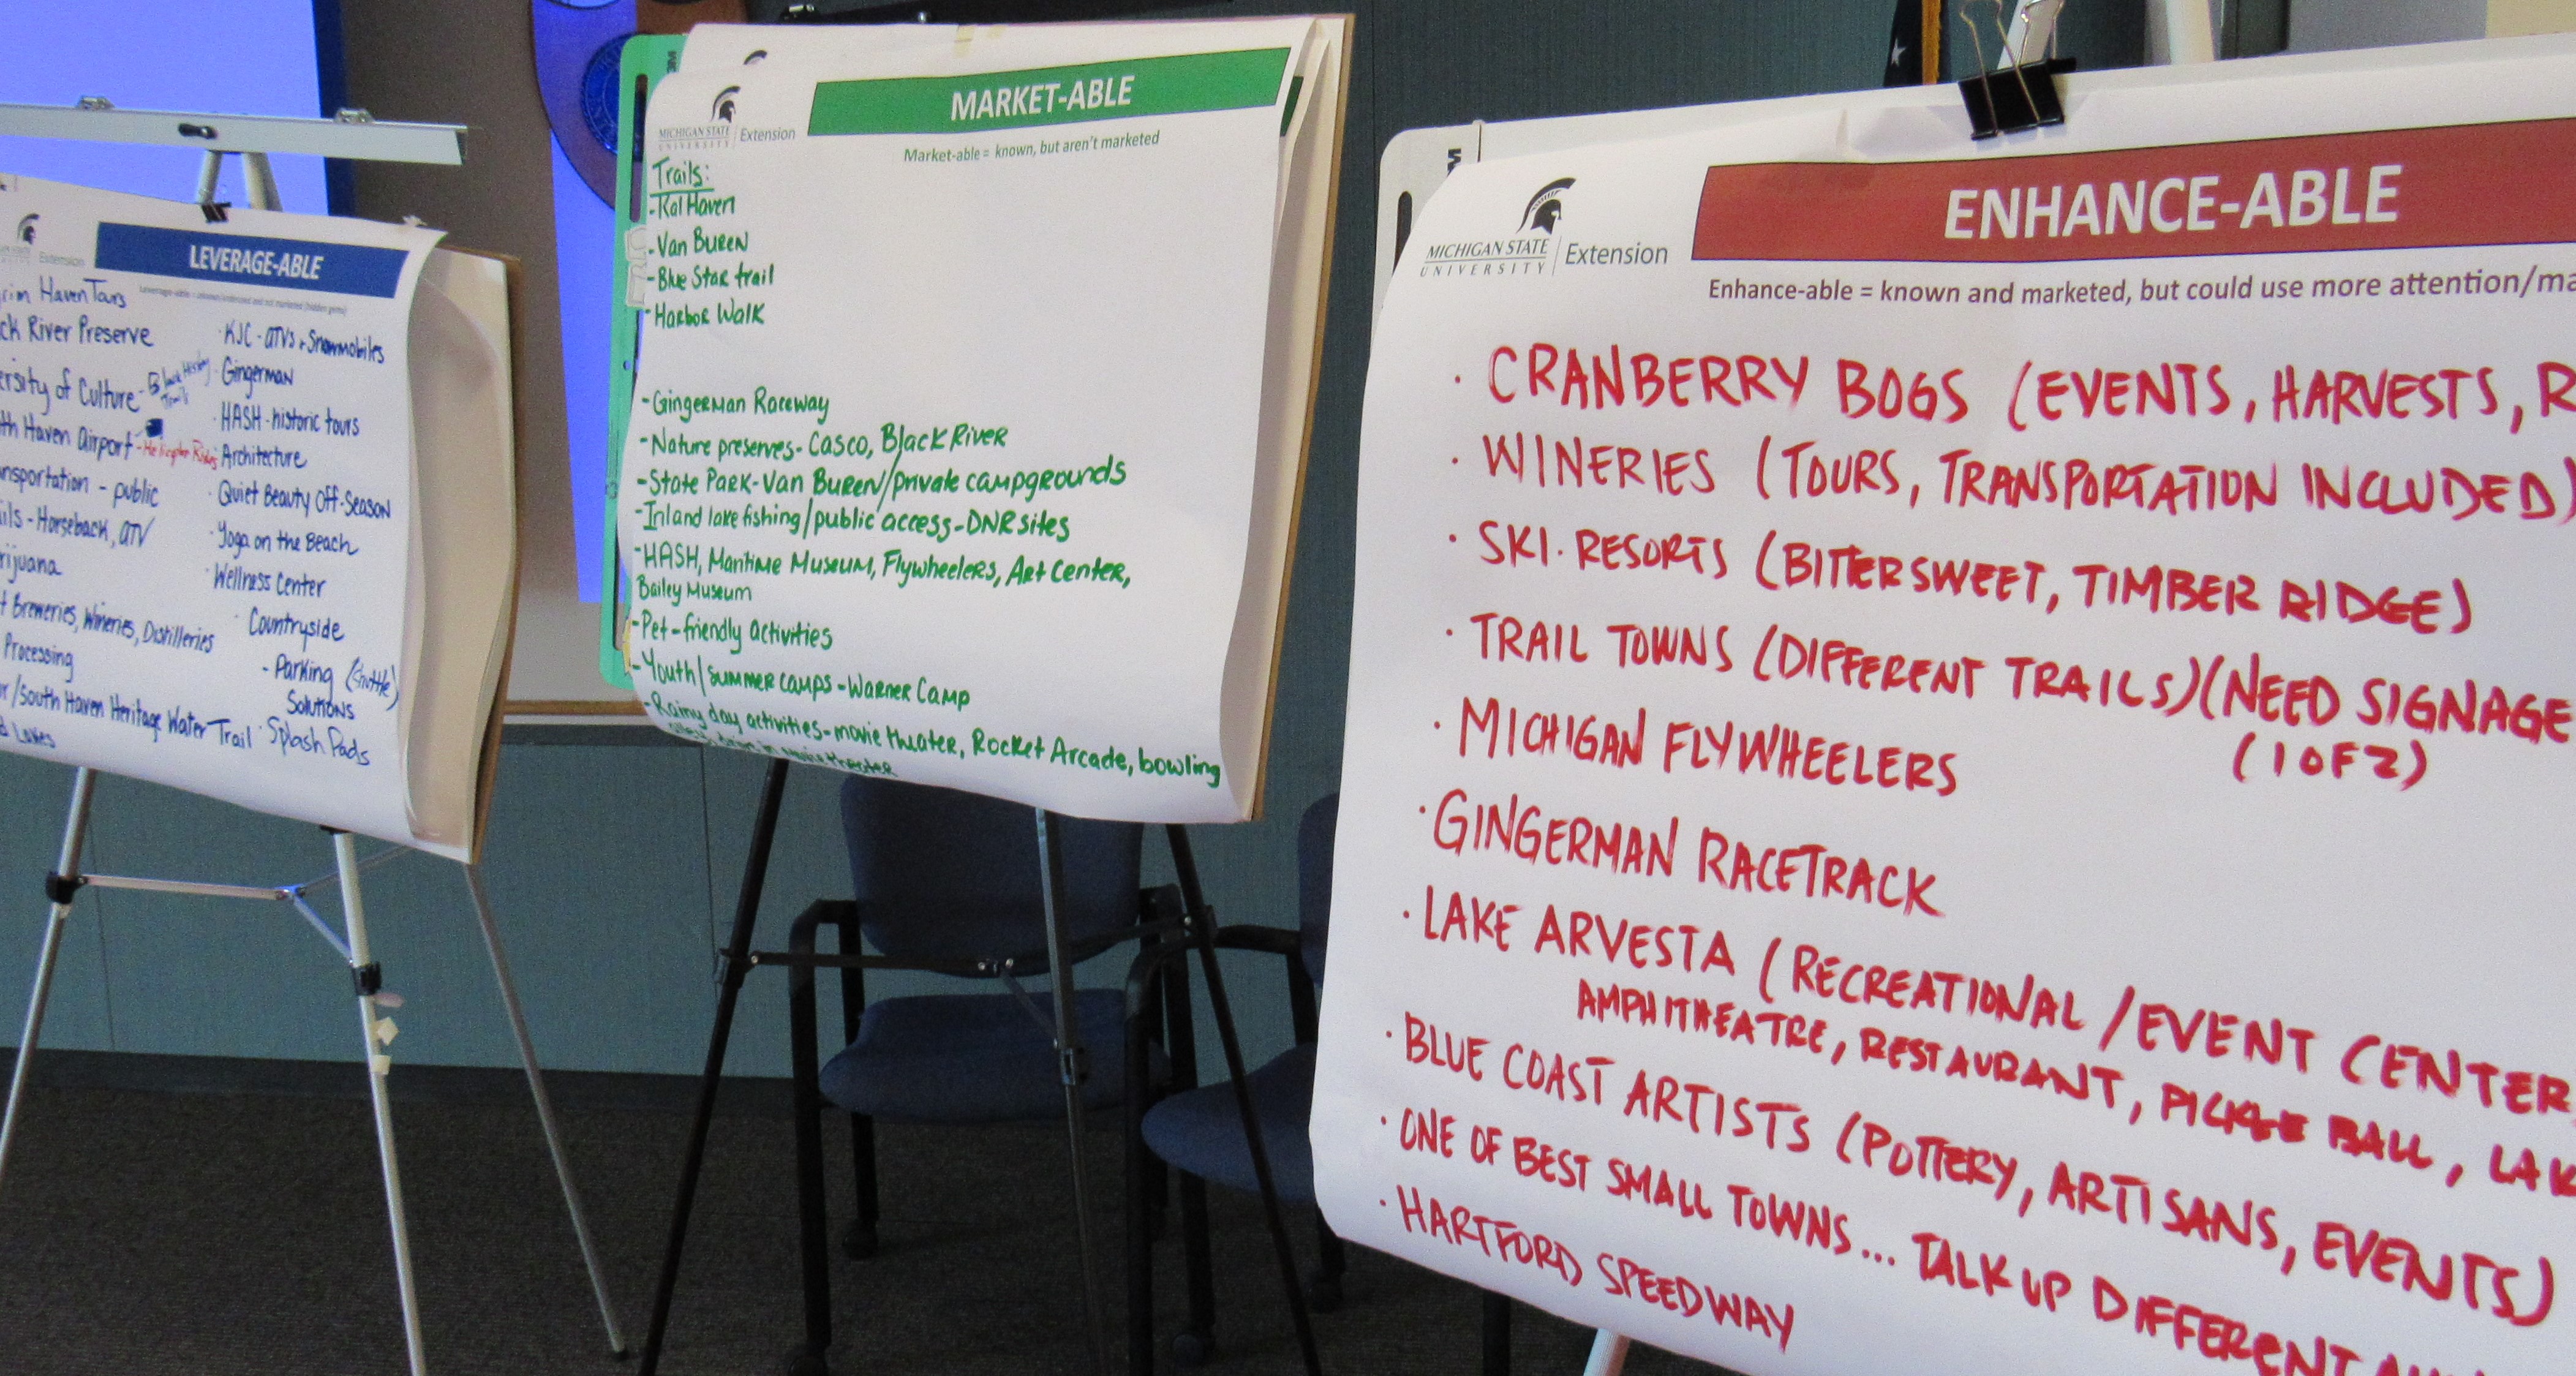 Extension
LEVERAGE-ABLE
Leverage-able =
(hidden gems)
Haven Tours
River Preserve
of Culture - Black History
Trails
Haven Airport - Helicopter Rides
- public
- Horseback, ATV
Breweries, Wineries, Distilleries
Processing
/South Haven Heritage Water Trail
Lakes
· KJC - ATVs + Snowmobiles
· Gingerman
· HASH - historic tours
Architecture
· Quiet Beauty Off-Season
· Yoga on the Beach
· Wellness Center
· Countryside
- Parking (Shuttle)
Solutions
· Splash Pads
MARKET-ABLE
MICHIGAN STATE
UNIVERSITY
Extension
Market-able = known, but aren't marketed
Trails:
- Kal Haven
- Van Buren
- Blue Star trail
- Harbor Walk
- Gingerman Raceway
- Nature preserves - Casco, Black River
- State Park - Van Buren/private campgrounds
- Inland lake fishing/public access - DNR sites
- HASH, Maritime Museum, Flywheelers, Art Center,
Bailey Museum
- Pet-friendly activities
- Youth/summer camps - Warner Camp
- Rainy day activities - movie theater, Rocket Arcade, bowling
alley, drive in movie theater
ENHANCE-ABLE
MICHIGAN STATE
UNIVERSITY
Extension
Enhance-able = known and marketed, but could use more attention/ma
· CRANBERRY BOGS (EVENTS, HARVESTS, R
· WINERIES (TOURS, TRANSPORTATION INCLUDED)
· SKI. RESORTS (BITTERSWEET, TIMBER RIDGE)
· TRAIL TOWNS (DIFFERENT TRAILS)(NEED SIGNAGE
(1 OF 2)
· MICHIGAN FLYWHEELERS
· GINGERMAN RACETRACK
· LAKE ARVESTA (RECREATIONAL/EVENT CENTER,
AMPHITHEATRE, RESTAURANT, PICKLE BALL, LAK
· BLUE COAST ARTISTS (POTTERY, ARTISANS, EVENTS)
· ONE OF BEST SMALL TOWNS... TALK UP DIFFERENT
· HARTFORD SPEEDWAY